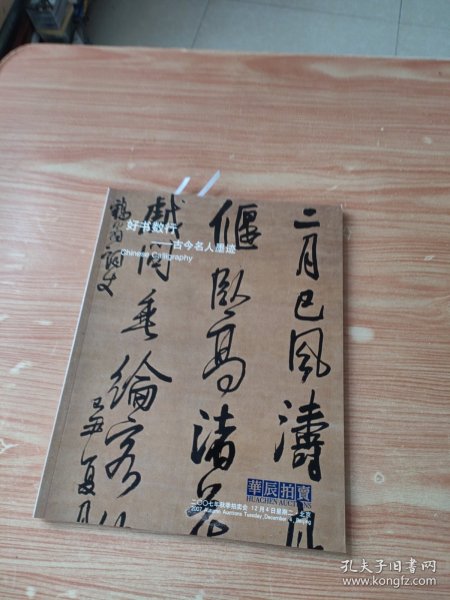 二月巳风涛
偃卧高渚
戲问垂綸客
鶴
好书数行
古今名人墨迹
Chinese Calligraphy
華辰拍賣
HUACHEN AUCTIONS
二〇〇七年秋季拍卖会 12月4日星期二 北京
2007 Autumn Auctions Tuesday, December 4, Beijing
孔夫子旧书网
www.kongfz.com